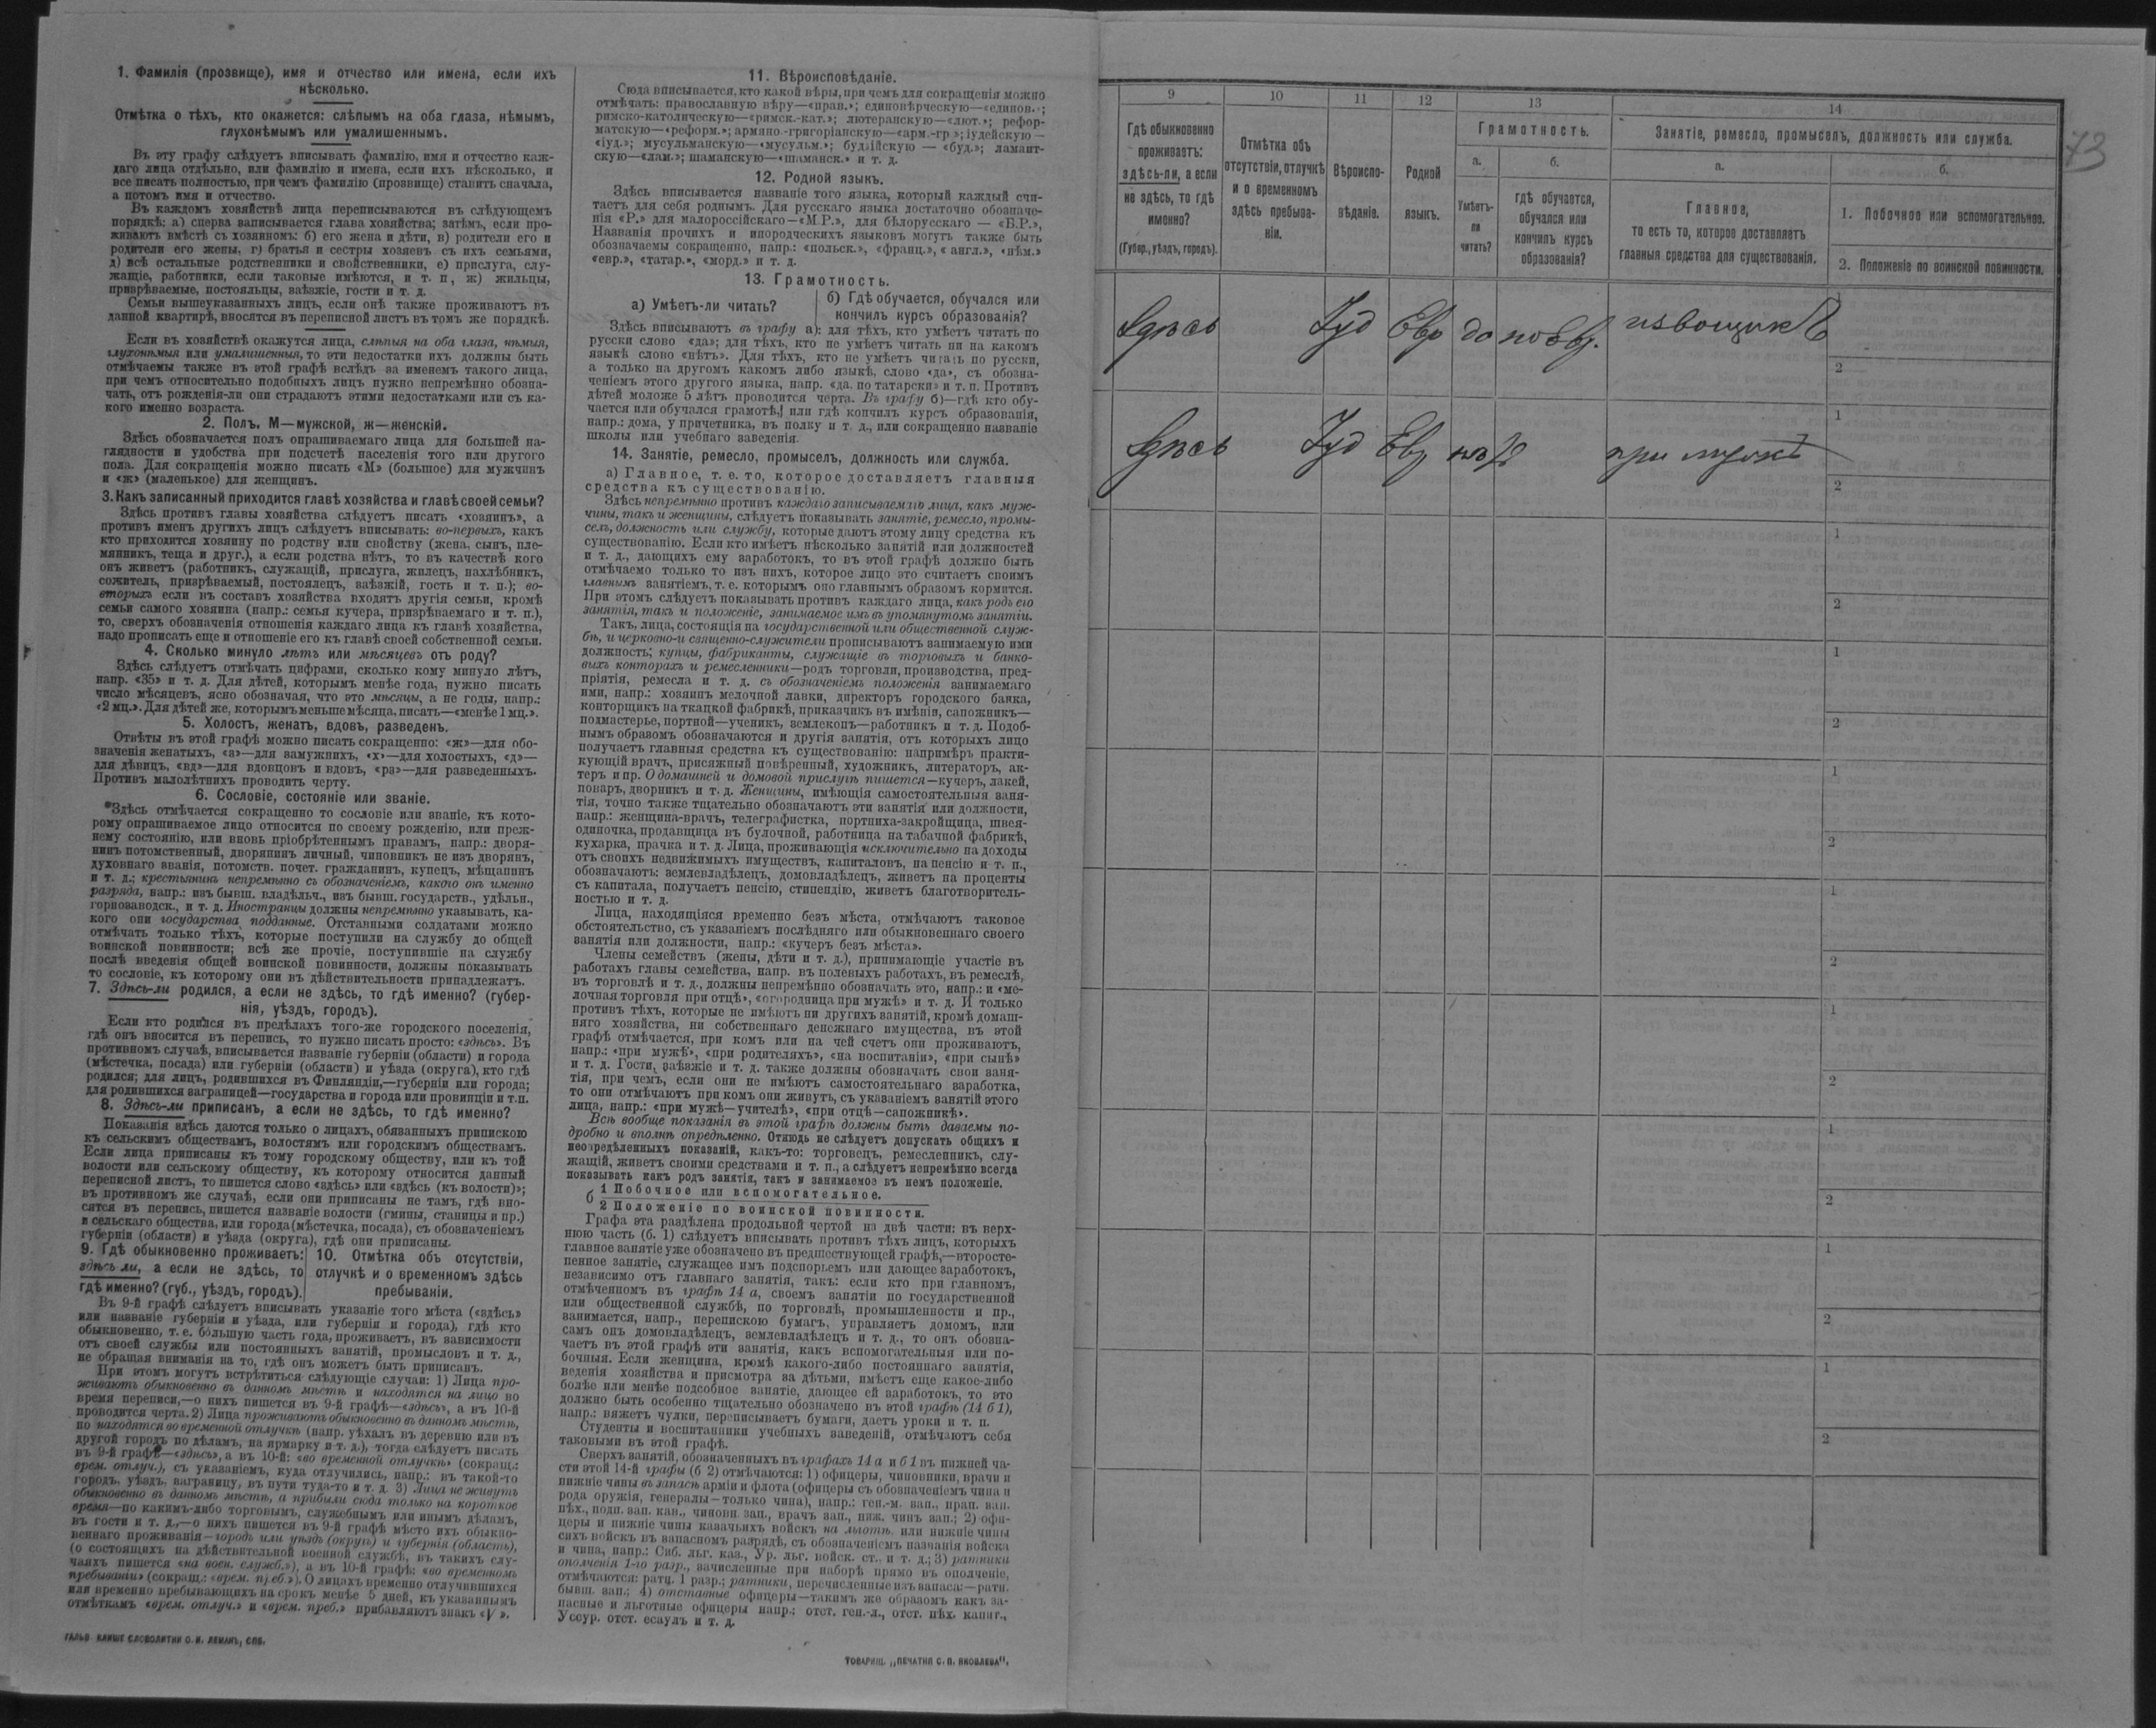 1. Фамилія (прозвище), имя и отчество или имена, если ихъ
нѣсколько.
Отмѣтка о тѣхъ, кто окажется: слѣпымъ на оба глаза, нѣмымъ,
глухонѣмымъ или умалишеннымъ.
Въ эту графу слѣдуетъ вписывать фамилію, имя и отчество каж-
даго лица отдѣльно, или фамилію и имена, если ихъ нѣсколько, и
все писать полностью, при чемъ фамилію (прозвище) ставить сначала,
а потомъ имя и отчество.
Въ каждомъ хозяйствѣ лица переписываются въ слѣдующемъ
порядкѣ: а) сперва записывается глава хозяйства; затѣмъ, если про-
живаютъ вмѣстѣ съ хозяиномъ: б) его жена и дѣти, в) родители его и
родители его жены, г) братья и сестры хозяевъ съ ихъ семьями,
д) всѣ остальные родственники и свойственники, е) прислуга, слу-
жащіе, работники, если таковые имѣются, и т. п, ж) жильцы,
призрѣваемые, постояльцы, заѣзжіе, гости и т. д.
Семьи вышеуказанныхъ лицъ, если онѣ также проживаютъ въ
данной квартирѣ, вносятся въ переписной листъ въ томъ же порядкѣ.
Если въ хозяйствѣ окажутся лица, слѣпыя на оба глаза, нѣмыя,
глухонѣмыя или умалишенныя, то эти недостатки ихъ должны быть
отмѣчаемы также въ этой графѣ вслѣдъ за именемъ такого лица,
при чемъ относительно подобныхъ лицъ нужно непремѣнно обозна-
чать, отъ рожденія-ли они страдаютъ этими недостатками или съ ка-
кого именно возраста.
2. Полъ. М—мужской, ж—женскій.
Здѣсь обозначается полъ опрашиваемаго лица для большей на-
глядности и удобства при подсчетѣ населенія того или другого
пола. Для сокращенія можно писать «М» (большое) для мужчинъ
и «ж» (маленькое) для женщинъ.
3. Какъ записанный приходится главѣ хозяйства и главѣ своей семьи?
Здѣсь противъ главы хозяйства слѣдуетъ писать «хозяинъ», а
противъ именъ другихъ лицъ слѣдуетъ вписывать: во-первыхъ, какъ
кто приходится хозяину по родству или свойству (жена, сынъ, пле-
мянникъ, теща и друг.), а если родства нѣтъ, то въ качествѣ кого
онъ живетъ (работникъ, служащій, прислуга, жилецъ, нахлѣбникъ,
сожитель, призрѣваемый, постоялецъ, заѣзжій, гость и т. п.); во-
вторыхъ если въ составъ хозяйства входятъ другія семьи, кромѣ
семьи самого хозяина (напр.: семья кучера, призрѣваемаго и т. п.),
то, сверхъ обозначенія отношенія каждаго лица къ главѣ хозяйства,
надо прописать еще и отношеніе его къ главѣ своей собственной семьи.
4. Сколько минуло лѣтъ или мѣсяцевъ отъ роду?
Здѣсь слѣдуетъ отмѣчать цифрами, сколько кому минуло лѣтъ,
напр. «35» и т. д. Для дѣтей, которымъ менѣе года, нужно писать
число мѣсяцевъ, ясно обозначая, что это мѣсяцы, а не годы, напр.:
«2 мц.». Для дѣтей же, которымъ меньше мѣсяца, писать—«менѣе 1 мц.».
5. Холостъ, женатъ, вдовъ, разведенъ.
Отвѣты въ этой графѣ можно писать сокращенно: «ж»—для обо-
значенія женатыхъ, «з»—для замужнихъ, «х»—для холостыхъ, «д»—
для дѣвицъ, «вд»—для вдовцовъ и вдовъ, «рз»—для разведенныхъ.
Противъ малолѣтнихъ проводить черту.
6. Сословіе, состояніе или званіе.
Здѣсь отмѣчается сокращенно то сословіе или званіе, къ кото-
рому опрашиваемое лицо относится по своему рожденію, или преж-
нему состоянію, или вновь пріобрѣтеннымъ правамъ, напр.: дворя-
нинъ потомственный, дворянинъ личный, чиновникъ не изъ дворянъ,
духовнаго званія, потомств. почет. гражданинъ, купецъ, мѣщанинъ
и т. д.; крестьянинъ непремѣнно съ обозначеніемъ, какого онъ именно
разряда, напр.: изъ бывш. владѣльч., изъ бывш. государств., удѣльн.,
горнозаводск., и т. д. Иностранцы должны непремѣнно указывать, ка-
кого они государства подданные. Отставными солдатами можно
отмѣчать только тѣхъ, которые поступили на службу до общей
воинской повинности; всѣ же прочіе, поступившіе на службу
послѣ введенія общей воинской повинности, должны показывать
то сословіе, къ которому они въ дѣйствительности принадлежатъ.
7. Здѣсь-ли родился, а если не здѣсь, то гдѣ именно? (губер-
нія, уѣздъ, городъ).
Если кто родился въ предѣлахъ того-же городского поселенія,
гдѣ онъ вносится въ перепись, то нужно писать просто: «здѣсь». Въ
противномъ случаѣ, вписывается названіе губерніи (области) и города
(мѣстечка, посада) или губерніи (области) и уѣзда (округа), кто гдѣ
родился; для лицъ, родившихся въ Финляндіи,—губерніи или города;
для родившихся заграницей—государства и города или провинціи и т.п.
8. Здѣсь-ли приписанъ, а если не здѣсь, то гдѣ именно?
Показанія здѣсь даются только о лицахъ, обязанныхъ припискою
къ сельскимъ обществамъ, волостямъ или городскимъ обществамъ.
Если лица приписаны къ тому городскому обществу, или къ той
волости или сельскому обществу, къ которому относится данный
переписной листъ, то пишется слово «здѣсь» или «здѣсь (къ волости)»;
въ противномъ же случаѣ, если они приписаны не тамъ, гдѣ вно-
сятся въ перепись, пишется названіе волости (гмины, станицы и пр.)
и сельскаго общества, или города (мѣстечка, посада), съ обозначеніемъ
губерніи (области) и уѣзда (округа), гдѣ они приписаны.
9. Гдѣ обыкновенно проживаетъ:
здѣсь ли, а если не здѣсь, то
гдѣ именно? (губ., уѣздъ, городъ).
10. Отмѣтка объ отсутствіи,
отлучкѣ и о временномъ здѣсь
пребываніи.
Въ 9-й графѣ слѣдуетъ вписывать указаніе того мѣста («здѣсь»
или названіе губерніи и уѣзда, или губерніи и города), гдѣ кто
обыкновенно, т. е. большую часть года, проживаетъ, въ зависимости
отъ своей службы или постоянныхъ занятій, промысловъ и т. д.,
не обращая вниманія на то, гдѣ онъ можетъ быть приписанъ.
При этомъ могутъ встрѣтиться слѣдующіе случаи: 1) Лица про-
живаютъ обыкновенно въ данномъ мѣстѣ и находятся на лицо во
время переписи,—о нихъ пишется въ 9-й графѣ—«здѣсь», а въ 10-й
проводится черта. 2) Лица проживаютъ обыкновенно въ данномъ мѣстѣ,
но находятся во временной отлучкѣ (напр. уѣхалъ въ деревню или въ
другой городъ по дѣламъ, на ярмарку и т. д.), тогда слѣдуетъ писать
въ 9-й графѣ—«здѣсь», а въ 10-й: «во временной отлучкѣ» (сокращ.:
врем. отлуч.), съ указаніемъ, куда отлучились, напр.: въ такой-то
городъ, уѣздъ, заграницу, въ пути туда-то и т. д. 3) Лица не живутъ
обыкновенно въ данномъ мѣстѣ, а прибыли сюда только на короткое
время—по какимъ-либо торговымъ, служебнымъ или инымъ дѣламъ,
въ гости и т. д.,—о нихъ пишется въ 9-й графѣ мѣсто ихъ обыкно-
веннаго проживанія—городъ или уѣздъ (округъ) и губернія (область),
(о состоящихъ на дѣйствительной военной службѣ, въ такихъ слу-
чаяхъ пишется «на воен. служб.»), а въ 10-й графѣ: «во временномъ
пребываніи» (сокращ.: «врем. преб.»). О лицахъ временно отлучившихся
или временно пребывающихъ на срокъ менѣе 5 дней, къ указаннымъ
отмѣткамъ «врем. отлуч.» и «врем. преб.» прибавляютъ знакъ «V».
ГАЛЬВ КЛИШЕ СЛОВОЛИТНИ О. И. ЛЕМАНЪ, СПБ.
11. Вѣроисповѣданіе.
Сюда вписывается, кто какой вѣры, при чемъ для сокращенія можно
отмѣчать: православную вѣру—«прав.»; единовѣрческую—«единов.»;
римско-католическую—«римск.-кат.»; лютеранскую—«лют.»; рефор-
матскую—«реформ.»; армяно.-григоріанскую—«арм.-гр.»; іудейскую—
«іуд.»; мусульманскую—«мусульм.»; буддійскую — «буд.»; ламаит-
скую—«лам.»; шаманскую—«шаманск.» и т. д.
12. Родной языкъ.
Здѣсь вписывается названіе того языка, который каждый счи-
таетъ для себя роднымъ. Для русскаго языка достаточно обозначе-
нія «Р.» для малороссійскаго—«М.Р.», для бѣлорусскаго — «Б.Р.»,
Названія прочихъ и инородческихъ языковъ могутъ также быть
обозначаемы сокращенно, напр.: «польск.», «франц.», «англ.», «нѣм.»
«евр.», «татар.», «морд.» и т. д.
13. Грамотность.
а) Умѣетъ-ли читать?
б) Гдѣ обучается, обучался или
кончилъ курсъ образованія?
Здѣсь вписываютъ въ графу а): для тѣхъ, кто умѣетъ читать по
русски слово «да»; для тѣхъ, кто не умѣетъ читать ни на какомъ
языкѣ слово «нѣтъ». Для тѣхъ, кто не умѣетъ читать по русски,
а только на другомъ какомъ либо языкѣ, слово «да», съ обозна-
ченіемъ этого другого языка, напр. «да. по татарски» и т. п. Противъ
дѣтей моложе 5 лѣтъ проводится черта. Въ графу б)—гдѣ кто обу-
чается или обучался грамотѣ, или гдѣ кончилъ курсъ образованія,
напр.: дома, у причетника, въ полку и т. д., или сокращенно названіе
школы или учебнаго заведенія.
14. Занятіе, ремесло, промыселъ, должность или служба.
а) Главное, т. е. то, которое доставляетъ главныя
средства къ существованію.
Здѣсь непремѣнно противъ каждаго записываемаго лица, какъ муж-
чины, такъ и женщины, слѣдуетъ показывать занятіе, ремесло, промы-
селъ, должность или службу, которые даютъ этому лицу средства къ
существованію. Если кто имѣетъ нѣсколько занятій или должностей
и т. д., дающихъ ему заработокъ, то въ этой графѣ должно быть
отмѣчаемо только то изъ нихъ, которое лицо это считаетъ своимъ
главнымъ занятіемъ, т. е. которымъ оно главнымъ образомъ кормится.
При этомъ слѣдуетъ показывать противъ каждаго лица, какъ родъ его
занятія, такъ и положеніе, занимаемое имъ въ упомянутомъ занятіи.
Такъ, лица, состоящія на государственной или общественной служ-
бѣ, и церковно-и священно-служители прописываютъ занимаемую ими
должность; купцы, фабриканты, служащіе въ торговыхъ и банко-
выхъ конторахъ и ремесленники—родъ торговли, производства, пред-
пріятія, ремесла и т. д. съ обозначеніемъ положенія занимаемаго
ими, напр.: хозяинъ мелочной лавки, директоръ городского банка,
конторщикъ на ткацкой фабрикѣ, приказчикъ въ имѣніи, сапожникъ—
подмастерье, портной—ученикъ, землекопъ—работникъ и т. д. Подоб-
нымъ образомъ обозначаются и другія занятія, отъ которыхъ лицо
получаетъ главныя средства къ существованію: напримѣръ практи-
кующій врачъ, присяжный повѣренный, художникъ, литераторъ, ак-
теръ и пр. О домашней и домовой прислугѣ пишется—кучеръ, лакей,
поваръ, дворникъ и т. д. Женщины, имѣющія самостоятельныя заня-
тія, точно также тщательно обозначаютъ эти занятія или должности,
напр.: женщина-врачъ, телеграфистка, портниха-закройщица, швея-
одиночка, продавщица въ булочной, работница на табачной фабрикѣ,
кухарка, прачка и т. д. Лица, проживающія исключительно на доходы
отъ своихъ недвижимыхъ имуществъ, капиталовъ, на пенсію и т. п.,
обозначаютъ: землевладѣлецъ, домовладѣлецъ, живетъ на проценты
съ капитала, получаетъ пенсію, стипендію, живетъ благотворитель-
ностью и т. д.
Лица, находящіяся временно безъ мѣста, отмѣчаютъ таковое
обстоятельство, съ указаніемъ послѣдняго или обыкновеннаго своего
занятія или должности, напр.: «кучеръ безъ мѣста».
Члены семействъ (жены, дѣти и т. д.), принимающіе участіе въ
работахъ главы семейства, напр. въ полевыхъ работахъ, въ ремеслѣ,
въ торговлѣ и т. д., должны непремѣнно обозначать это, напр.: и «ме-
лочная торговля при отцѣ», «огородница при мужѣ» и т. д. И только
противъ тѣхъ, которые не имѣютъ ни другихъ занятій, кромѣ домаш-
няго хозяйства, ни собственнаго денежнаго имущества, въ этой
графѣ отмѣчается, при комъ или на чей счетъ они проживаютъ,
напр.: «при мужѣ», «при родителяхъ», «на воспитаніи», «при сынѣ»
и т. д. Гости, заѣзжіе и т. д. также должны обозначать свои заня-
тія, при чемъ, если они не имѣютъ самостоятельнаго заработка,
то они отмѣчаютъ при комъ они живутъ, съ указаніемъ занятій этого
лица, напр.: «при мужѣ—учителѣ», «при отцѣ—сапожникѣ».
Всѣ вообще показанія въ этой графѣ должны быть даваемы по-
дробно и вполнѣ опредѣленно. Отнюдь не слѣдуетъ допускать общихъ и
неопредѣленныхъ показаній, какъ-то: торговецъ, ремесленникъ, слу-
жащій, живетъ своими средствами и т. п., а слѣдуетъ непремѣнно всегда
показывать какъ родъ занятія, такъ и занимаемое въ немъ положеніе.
б 1 Побочное или вспомогательное.
2 Положеніе по воинской повинности.
Графа эта раздѣлена продольной чертой на двѣ части: въ верх-
нюю часть (б. 1) слѣдуетъ вписывать противъ тѣхъ лицъ, которыхъ
главное занятіе уже обозначено въ предшествующей графѣ,—второсте-
пенное занятіе, служащее имъ подспорьемъ или дающее заработокъ,
независимо отъ главнаго занятія, такъ: если кто при главномъ,
отмѣченномъ въ графѣ 14 а, своемъ занятіи по государственной
или общественной службѣ, по торговлѣ, промышленности и пр.,
занимается, напр., перепискою бумагъ, управляетъ домомъ, или
самъ онъ домовладѣлецъ, землевладѣлецъ и т. д., то онъ обозна-
чаетъ въ этой графѣ эти занятія, какъ вспомогательныя или по-
бочныя. Если женщина, кромѣ какого-либо постояннаго занятія,
веденія хозяйства и присмотра за дѣтьми, имѣетъ еще какое-либо
болѣе или менѣе подсобное занятіе, дающее ей заработокъ, то это
должно быть особенно тщательно обозначено въ этой графѣ (14 б 1),
напр.: вяжетъ чулки, переписываетъ бумаги, даетъ уроки и т. п.
Студенты и воспитанники учебныхъ заведеній, отмѣчаютъ себя
таковыми въ этой графѣ.
Сверхъ занятій, обозначенныхъ въ графахъ 14 а и б 1 въ нижней ча-
сти этой 14-й графы (б 2) отмѣчаются: 1) офицеры, чиновники, врачи и
нижніе чины въ запасѣ арміи и флота (офицеры съ обозначеніемъ чина и
рода оружія, генералы—только чина), напр.: ген.-м. зап., прап. зап.
пѣх., подп. зап. кав., чиновн. зап., врачъ зап., ниж. чинъ зап.; 2) офи-
церы и нижніе чины казачьихъ войскъ на льготѣ. или нижніе чины
сихъ войскъ въ запасномъ разрядѣ, съ обозначеніемъ названія войска
и чина, напр.: Сиб. льг. каз., Ур. льг. войск. ст.. и т. д.; 3) ратники
ополченія 1-го разр., зачисленные при наборѣ прямо въ ополченіе,
отмѣчаются: ратн. 1 разр.; ратники, перечисленные изъ запаса:—ратн.
бывш. зап.; 4) отставные офицеры—такимъ же образомъ какъ за-
пасные и льготные офицеры напр.: отст. ген.-л., отст. пѣх. капит.,
Уссур. отст. есаулъ и т. д.
ТОВАРИЩ. „ПЕЧАТНЯ С. П. ЯКОВЛЕВА".
73
9
10
11
12
13
14
Гдѣ обыкновенно
проживаетъ:
здѣсь-ли, а если
не здѣсь, то гдѣ
именно?
(Губер., уѣздъ, городъ).
Отмѣтка объ
отсутствіи, отлучкѣ
и о временномъ
здѣсь пребыва-
ніи.
Вѣроиспо-
вѣданіе.
Родной
языкъ.
Грамотность.
а.
Умѣетъ-
ли
читать?
б.
гдѣ обучается,
обучался или
кончилъ курсъ
образованія?
Занятіе, ремесло, промыселъ, должность или служба.
а.
Главное,
то есть то, которое доставляетъ
главныя средства для существованія.
б.
1. Побочное или вспомогательное.
2. Положеніе по воинской повинности.
Здѣсь Іуд Евр да по евр. извощикъ
1
2
Здѣсь Іуд Евр нѣтъ при мужѣ
1
2
1
2
1
2
1
2
1
2
1
2
1
2
1
2
1
2